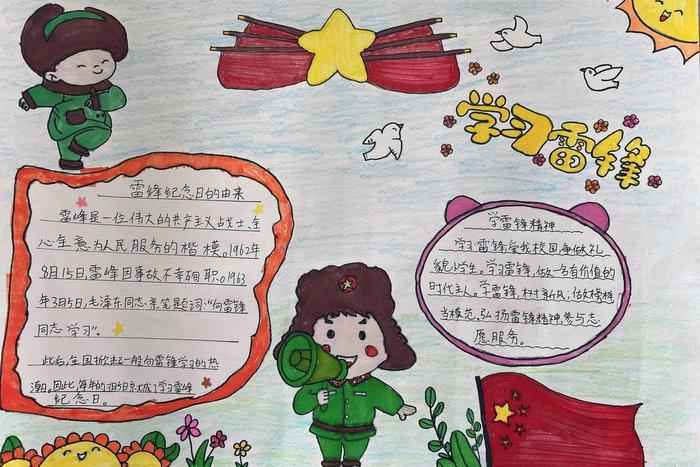 学习雷锋
雷锋纪念日的由来
雷峰是一位伟大的共产主义战士、全
心全意为人民服务的楷模。1962年
8月15日,雷峰因事故不幸殉职。1963
年3月5日,毛泽东同志亲笔题词:“向雷锋
同志学习”。
此后,全国掀起一股向雷锋学习的热
潮。因此,每年的3月5日成了学习雷峰
纪念日。
学雷锋精神
学习雷锋,学我校园,争做礼
貌小学生。学习雷锋,做一名有价值的
时代主人。学雷锋,树新风,做榜样
当模范,弘扬雷锋精神,参与志
愿服务。